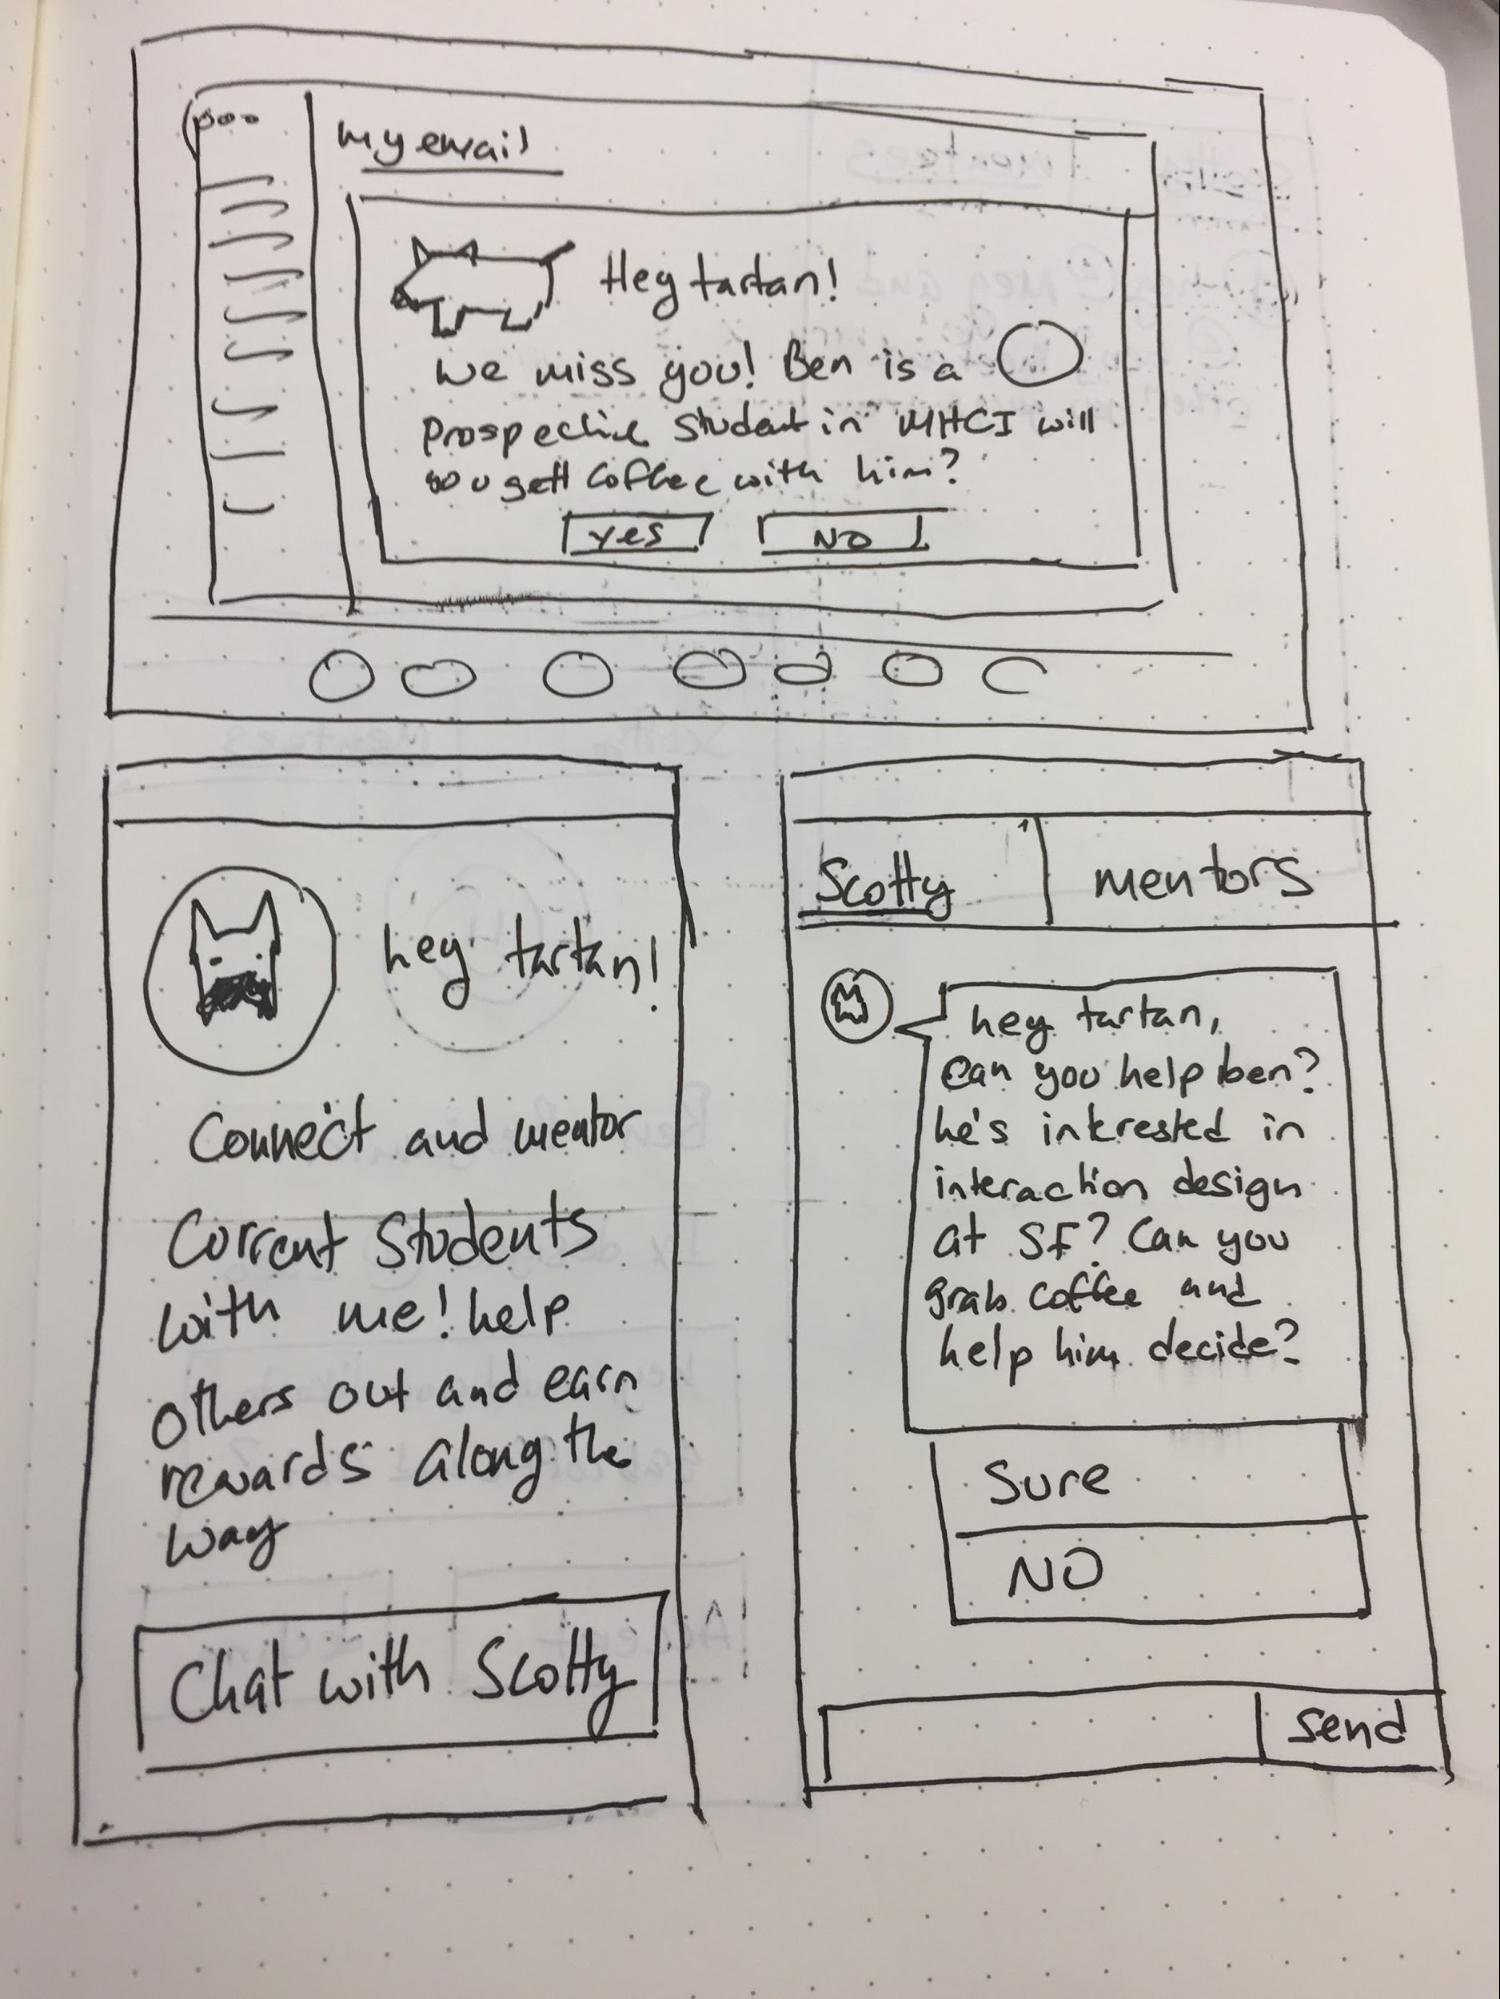 my email
Hey tartan!
we miss you! Ben is a
prospective student in MHCI will
you gett coffee with him?
yes
NO
hey tartan!
Connect and mentor
Current Students
with me! help
others out and earn
rewards along the
way
Chat with Scotty
Scotty
mentors
hey tartan,
can you help ben?
he's interested in
interaction design
at SF? Can you
grab coffee and
help him decide?
Sure
NO
send